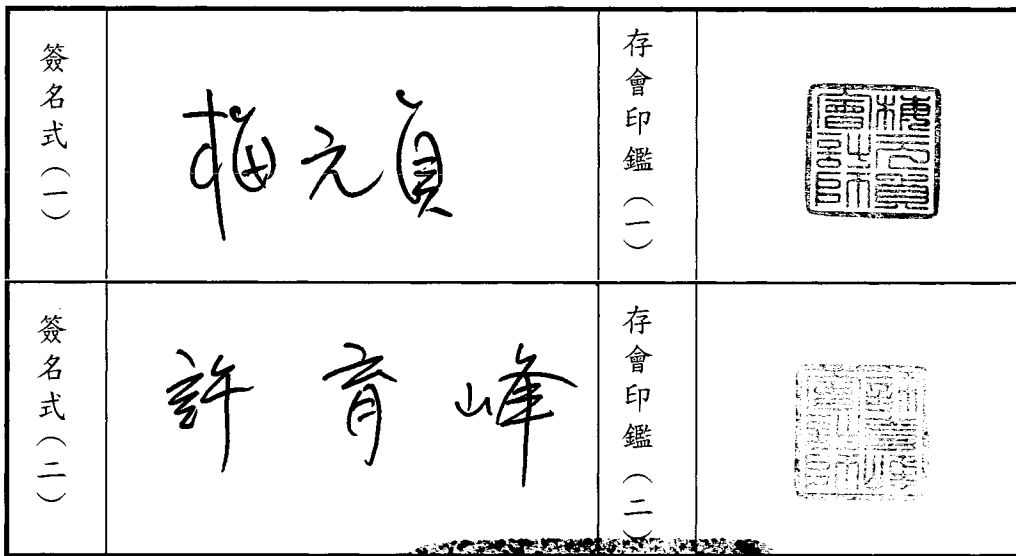 簽名式(一)
梅元貞
存會印鑑(一)
梅元貞
會計師
簽名式(二)
許育峰
存會印鑑(二)